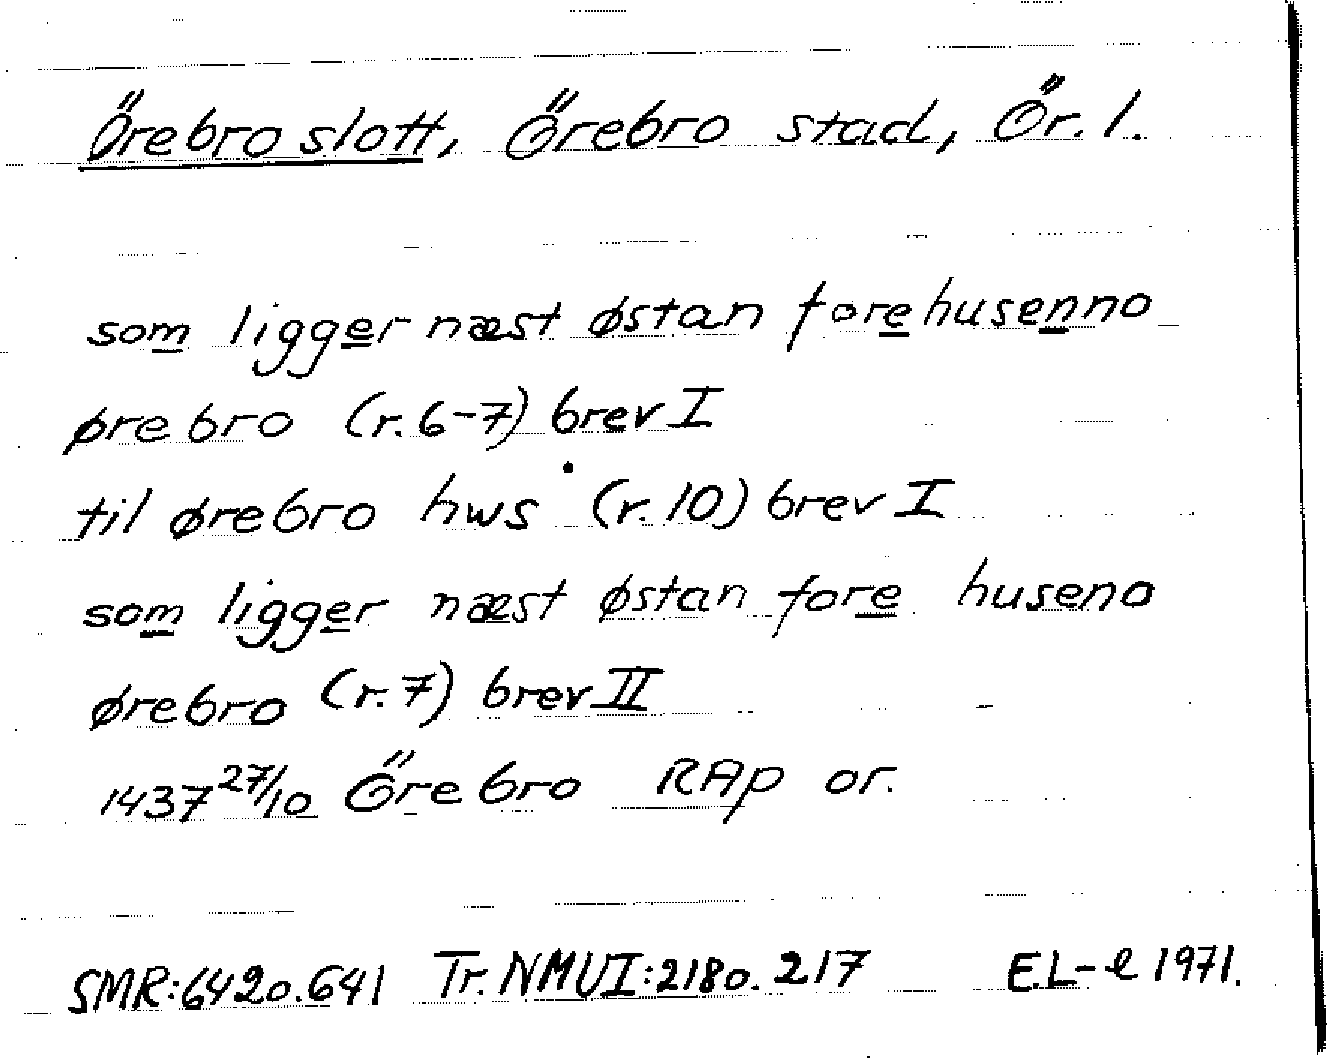 Örebro slott, Örebro stad, Ör. l.
som ligger næst østan fore husenno
ørebro (r. 6-7) brev I
til ørebro hws (r. 10) brev I
som ligger næst østan fore huseno
ørebro (r. 7) brev II
1437 27/10 Örebro RAp or.
SMR: 6420. 641 Tr. NMU I: 2180. 217 E.L-l 1971.